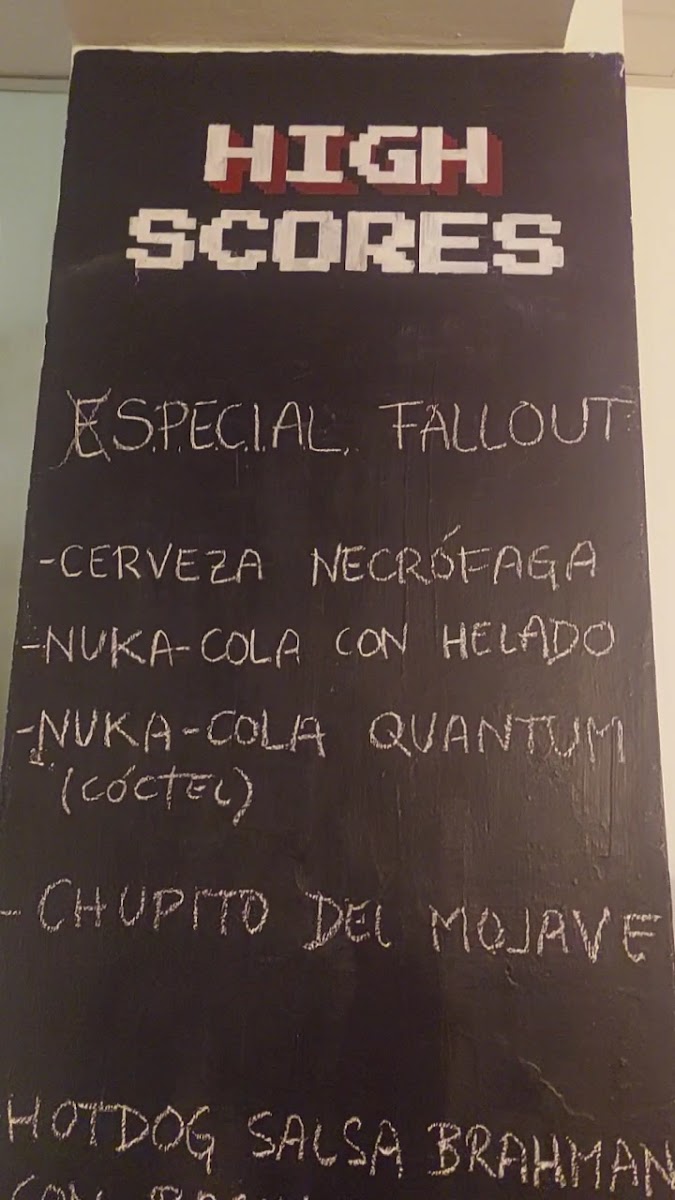 HIGH
SCORES
ES.P.E.C.I.A.L. FALLOUT
-CERVEZA NECRÓFAGA
-NUKA-COLA CON HELADO
-NUKA-COLA QUANTUM
(CÓCTEL)
- CHUPITO DEL MOJAVE
HOTDOG SALSA BRAHMAN
CON